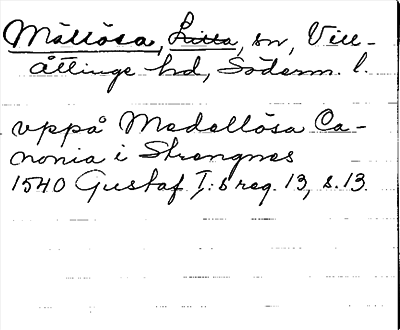 Mällösa, Lilla, sn, Vill-
åttinge hd, Söderm. l.
vppå Medellösa Ca-
nonia i Strengnes
1540 Gustaf I:s reg. 13, s. 13.